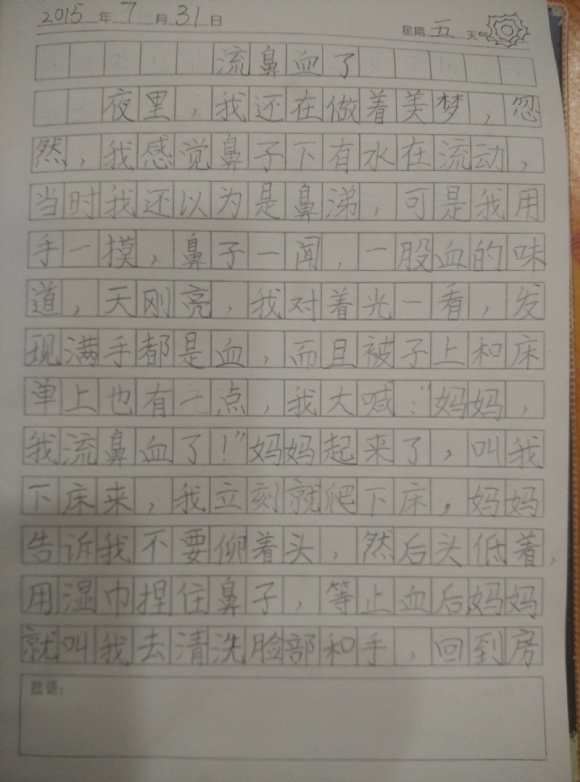 2015年7月31日 星期五 天气
流鼻血了
夜里，我还在做着美梦，忽
然，我感觉鼻子下有水在流动，
当时我还以为是鼻涕，可是我用
手一摸，鼻子一闻，一股血的味
道，天刚亮，我对着光一看，发
现满手都是血，而且被子上和床
单上也有一点，我大喊：“妈妈，
我流鼻血了！”妈妈起来了，叫我
下床来，我立刻就爬下床，妈妈
告诉我不要仰着头，然后头低着，
用湿巾捏住鼻子，等止血后妈妈
就叫我去清洗脸部和手，回到房
批语：